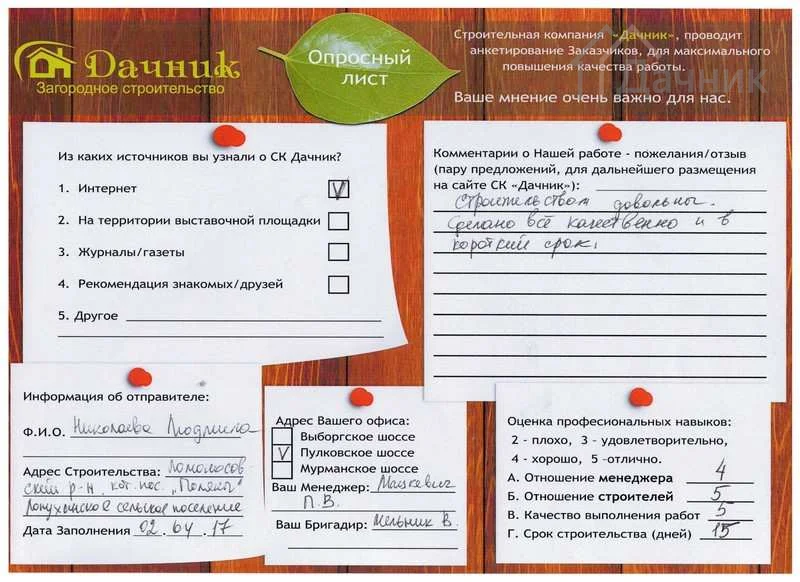 Дачник
Загородное строительство
Опросный
лист
Строительная компания «Дачник», проводит
анкетирование Заказчиков, для максимального
повышения качества работы.
Дачник
Ваше мнение очень важно для нас.
Из каких источников вы узнали о СК Дачник?
1. Интернет V
2. На территории выставочной площадки
3. Журналы/газеты
4. Рекомендация знакомых/друзей
5. Другое
Комментарии о Нашей работе - пожелания/отзыв
(пару предложений, для дальнейшего размещения
на сайте СК «Дачник»):
Строительством довольны.
Сделано всё качественно и в
короткий срок.
Информация об отправителе:
Ф.И.О. Николаева Людмила
Адрес Строительства: Ломоносов-
ский р-н. кот. пос. „Поляна"
Лопухинское сельское поселение
Дата Заполнения 02.04.17
Адрес Вашего офиса:
Выборгское шоссе
V Пулковское шоссе
Мурманское шоссе
Ваш Менеджер: Мацкевич
П.В.
Ваш Бригадир: Мельник В.
Оценка професиональных навыков:
2 - плохо, 3 - удовлетворительно,
4 - хорошо, 5 -отлично.
А. Отношение менеджера 4
Б. Отношение строителей 5
В. Качество выполнения работ 5
Г. Срок строительства (дней) 15